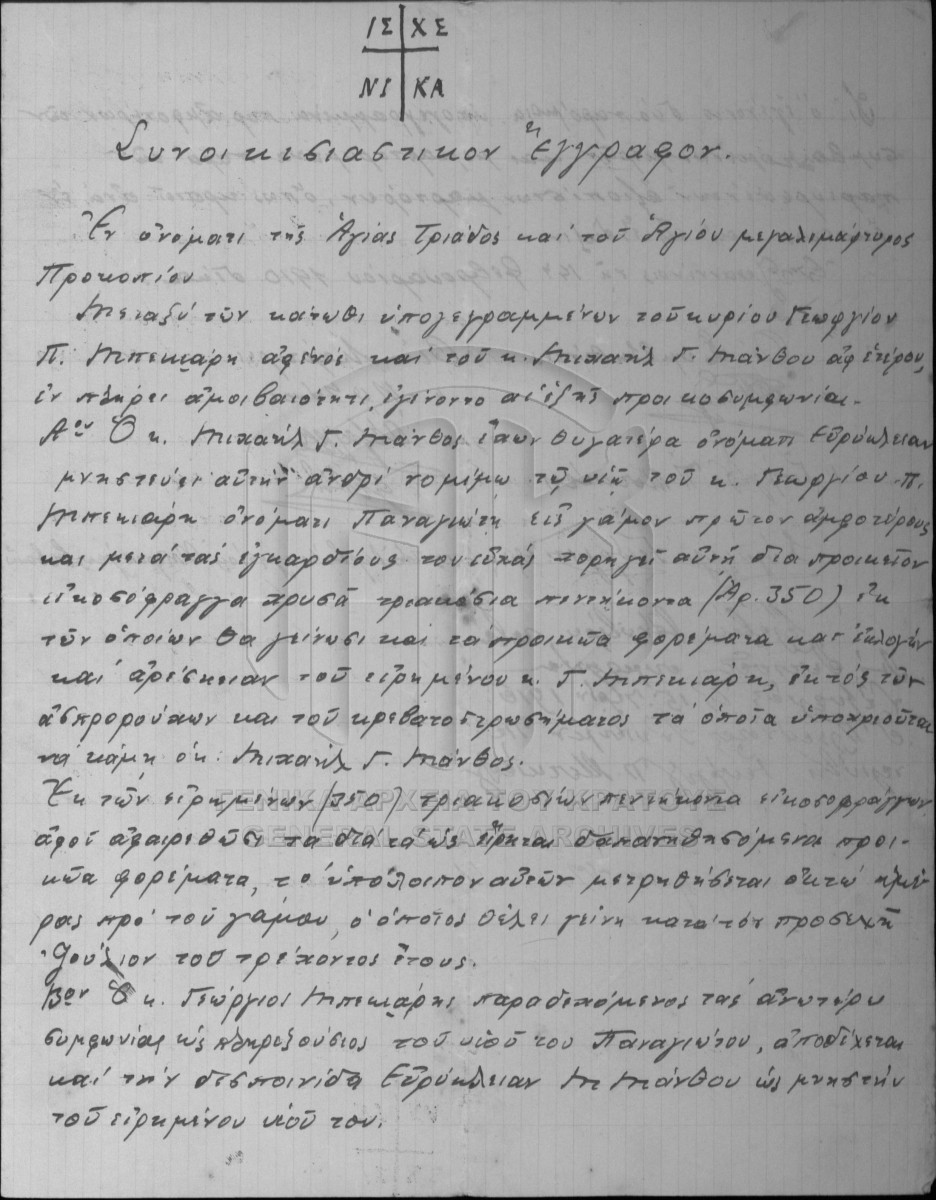 ΙΣ ΧΣ
ΝΙ ΚΑ
Συνοικισιαστικον Ἔγγραφον.
Ἐν ὀνόματι τῆς Ἁγίας Τριάδος καὶ τοῦ Ἁγίου μεγαλομάρτυρος
Προκοπίου
Μεταξὺ τῶν κάτωθι ὑπογεγραμμένων τοῦ κυρίου Γεωργίου
Π. Μπεκιάρη ἀφενός καὶ τοῦ κ. Μιχαήλ Γ. Μάνθου ἀφ ἑτέρου,
ἐν πλήρει ἀμοιβαιότητι, ἐγίνοντο αἱ ἑξῆς προικοσυμφωνίαι.
Αον Ὁ κ. Μιχαήλ Γ. Μάνθος ἔχων θυγατέρα ὀνόματι Εὐρύκλειαν
μνηστεύει αὐτήν ἀνδρί νομίμω τῷ υἱῷ τοῦ κ. Γεωργίου Π.
Μπεκιάρη ὀνόματι Παναγιώτη εἰς γάμον πρῶτον ἀμφοτέρους
και μετά τάς ἐγκαρδίους του εὐχάς χορηγεῖ αὐτῇ δια προικεῖον
εἰκοσόφραγγα χρυσᾶ τριακόσια πεντήκοντα (Αρ. 350) ἐκ
τῶν ὁποίων θα γείνωσι και τα προικῶα φορέματα κατ' ἐκλογήν
καὶ ἀρέσκειαν τοῦ εἰρημένου κ. Γ. Μπεκιάρη, ἐκτός τῶν
ἀσπρορούχων και τοῦ κρεβατοστρωσήματος τά ὁποῖα ὑποχρεοῦται
νά κάμῃ ὁ κ. Μιχαήλ Γ. Μάνθος.
Ἐκ τῶν εἰρημένων (350) τριακοσίων πεντήκοντα εἰκοσοφράγγων
ἀφοῦ ἀφαιρεθῶσι τα δια τα ὡς εἴρηται δαπανηθησόμενα προι-
κῶα φορέματα, τό ὑπόλοιπον αὐτῶν μετρηθήσεται ὀκτώ ἡμέ-
ρας πρό τοῦ γάμου, ὁ ὁποῖος θέλει γείνῃ κατά τόν προσεχῆ
Ἰούλιον τοῦ τρέχοντος ἔτους.
Βον Ὁ κ. Γεώργιος Μπεκιάρης παραδεχόμενος τάς ἀνωτέρω
συμφωνίας ὡς πληρεξούσιος τοῦ υἱοῦ του Παναγιώτου, ἀποδέχεται
καί τήν δεσποινίδα Εὐρύκλειαν Μ Μάνθου ὡς μνηστήν
τοῦ εἰρημένου υἱοῦ του.
ΓΕΝΙΚΑ ΑΡΧΕΙΑ ΤΟΥ ΚΡΑΤΟΥΣ
GENERAL STATE ARCHIVES